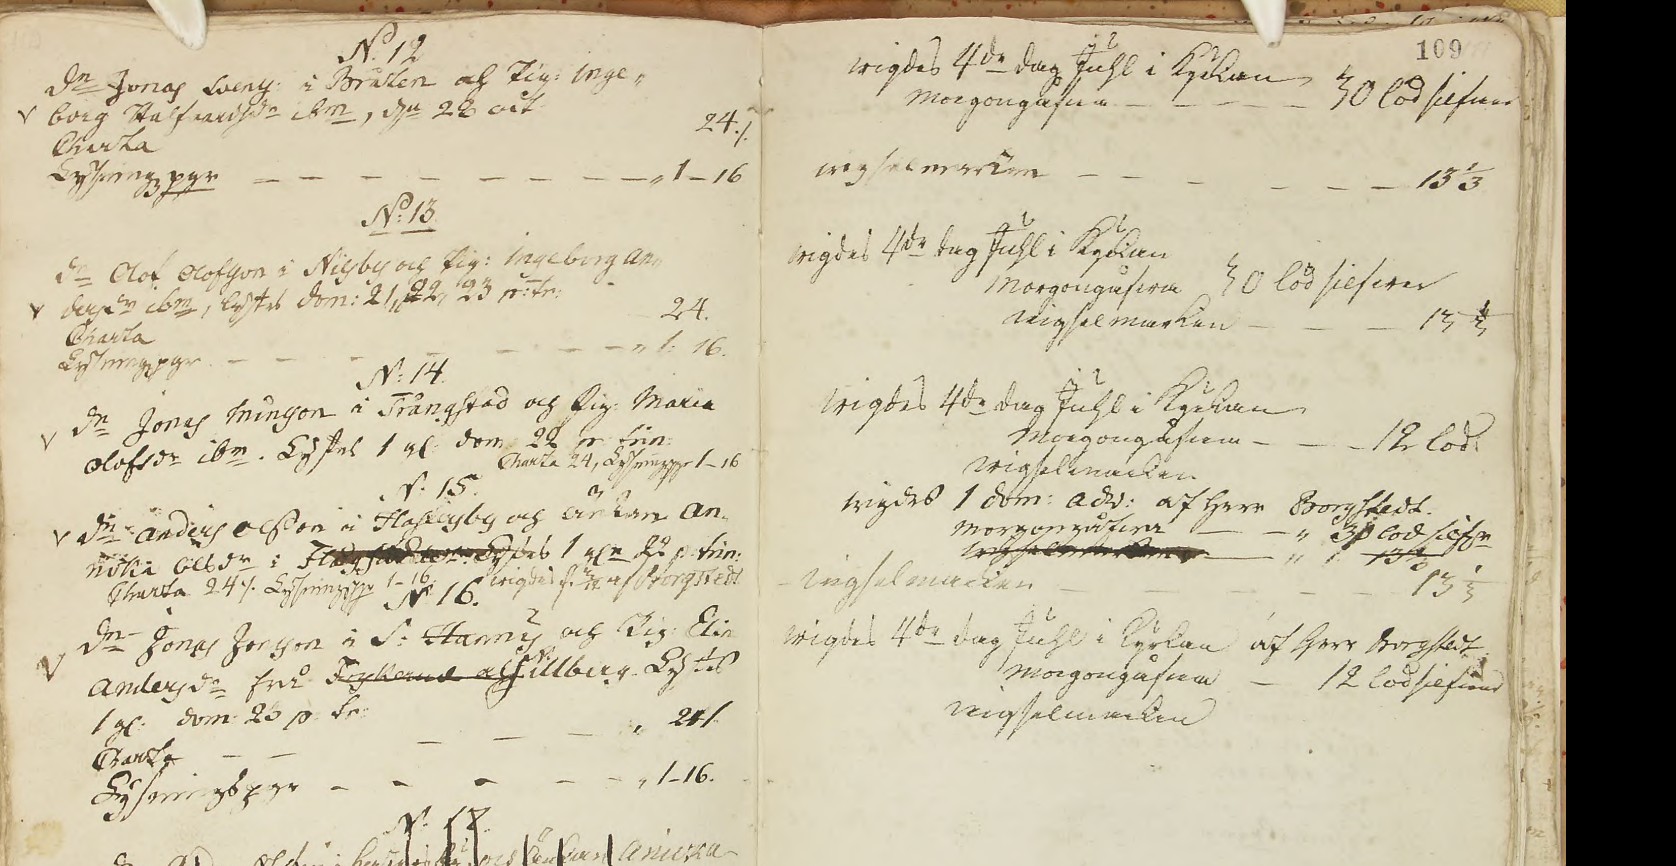 N:o 12
dn Jonas Svens: i Bråten och Pig: Inge„
borg Halfvardsdr ibm, d:n 22 oct
Charta 24./.
Lysningspgr — — — — — — — „ 1–16
N: 13.
dn Olof Olofson i Nilsby och Pig: Ingeborg An„
dersdr ibm, Lystes dom: 21, 22, 23 p: tr:
Charta 24.
Lysningspgr. — — — — — „ 1: 16.
N: 14.
dn Jonas Munson i Trångstad och Pig: Maria
Olofsdr ibm. Lystes 1 gg: dom 22 p trin:
Charta 24, Lysningspgr 1–16
N: 15.
dn Anders Olsson i och Enkan An„
nika Olsdr i Lystes 1 gn 22 p trin:
Charta 24./. Lysningspgr 1–16. vigdes af Borgstedt
N: 16.
dn Jonas Jonson i S: Hannäs och Pig: Elin
Andersdr frå Lillberg. Lystes
1 gg: dom: 23 p: tr:
Charta — — — — — „ 24/.
Lysningspgr — — — — — „ 1–16.
N: 17.
109
vigdes 4de dag Juhl i Kyrkan
Morgongåfwa — — — — 30 lod silfwer
wigselmarken — — — — — — 13 1/3
vigdes 4de dag Juhl i Kyrkan
Morgongåfwa 30 lod silfwer
wigselmarken — — — 13 1/3
vigdes 4de dag Juhl i Kyrkan
Morgongåfwa — — — 12 lod.
wigselmarken
vigdes 1 dom: adv: af Herr Borgstedt.
Morgongåfwa — — „ 30 lod silfr
wigselmarken — — — — — 13 1/3
vigdes 4de dag Juhl i Kyrkan af Herr Borgstedt
Morgongåfwa — 12 lod silfwer
wigselmarken